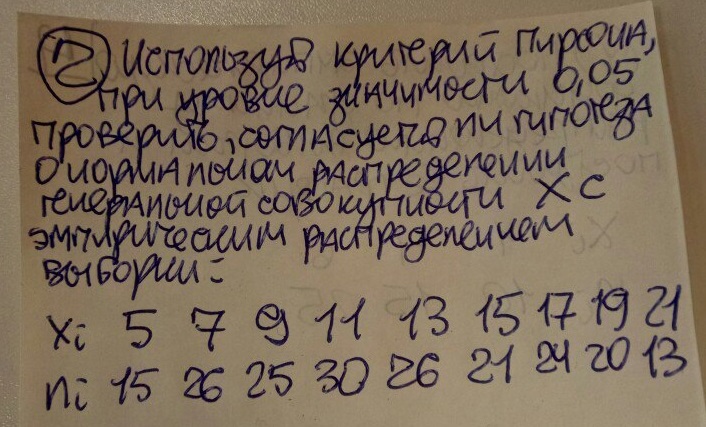 2 Используя критерий Пирсона,
при уровне значимости 0,05
проверить, согласуется ли гипотеза
о нормальном распределении
генеральной совокупности X с
эмпирическим распределением
выборки:
xi 5 7 9 11 13 15 17 19 21
ni 15 26 25 30 26 21 24 20 13